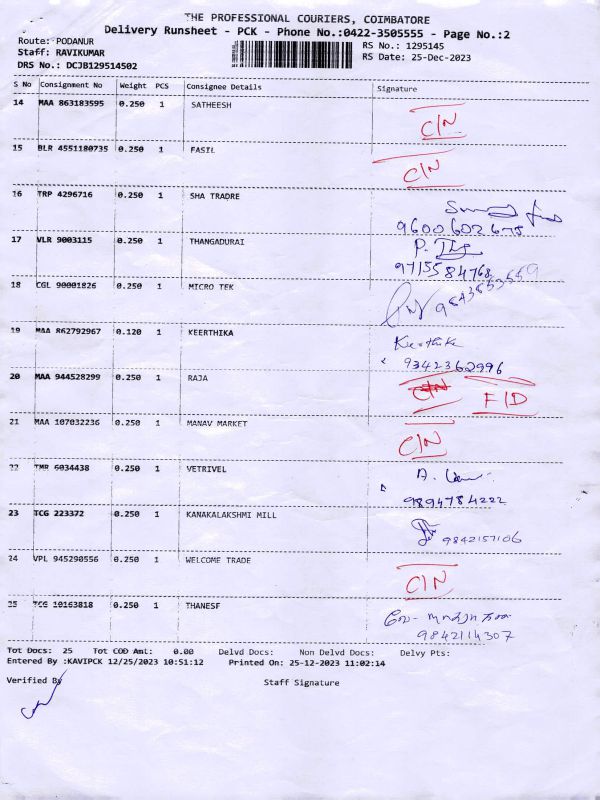 THE PROFESSIONAL COURIERS, COIMBATORE
Delivery Runsheet - PCK - Phone No.:0422-3505555 - Page No.:2
Route: PODANUR
RS No.: 1295145
Staff: RAVIKUMAR
RS Date: 25-Dec-2023
DRS No.: DCJB129514502
S No Consignment No Weight PCS Consignee Details Signature
14 MAA 863183595 0.250 1 SATHEESH C/N
15 BLR 4551180735 0.250 1 FASIL C/N
16 TRP 4296716 0.250 1 SHA TRADRE
9600602678
17 VLR 9003115 0.250 1 THANGADURAI P.
9715584768
18 CGL 90001826 0.250 1 MICRO TEK
19 MAA 862792967 0.120 1 KEERTHIKA Keerthika
9342362996
20 MAA 944528299 0.250 1 RAJA C/N F/D
21 MAA 107032236 0.250 1 MANAV MARKET C/N
22 TMR 6034438 0.250 1 VETRIVEL A.
9894784222
23 TCG 223372 0.250 1 KANAKALAKSHMI MILL
9842157106
24 VPL 945290556 0.250 1 WELCOME TRADE C/N
25 TCG 10163818 0.250 1 THANESF
9842114307
Tot Docs: 25 Tot COD Amt: 0.00 Delvd Docs: Non Delvd Docs: Delvy Pts:
Entered By :KAVIPCK 12/25/2023 10:51:12 Printed On: 25-12-2023 11:02:14
Verified By Staff Signature